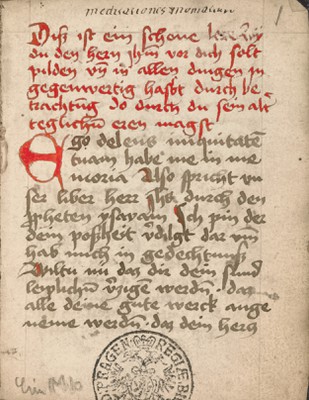 meditationes
1
Diß ist ein schone
du den hern Jhm vor dich solt
pilden vn̄ in allen dingen in
gegenwertig hast durch be
trachtūg do durch du sein alt
teglichn̄ eren magst
Ego deleui iniquitatē
tuam habe me in me
moria Also spricht vn
ser liber herr Jhs durch den
ꝓheten ysayam Ich pin der
dein poßheit v̓dilgt dar vm̄
hab mich in gedechtnuß
Wiltu nu das dir dein sund
leiplichn̄ v̓zige werdn̄ · das
alle deine gute werck ange
neme werdn̄ · das dein hercz
PRAGEN REGIÆ